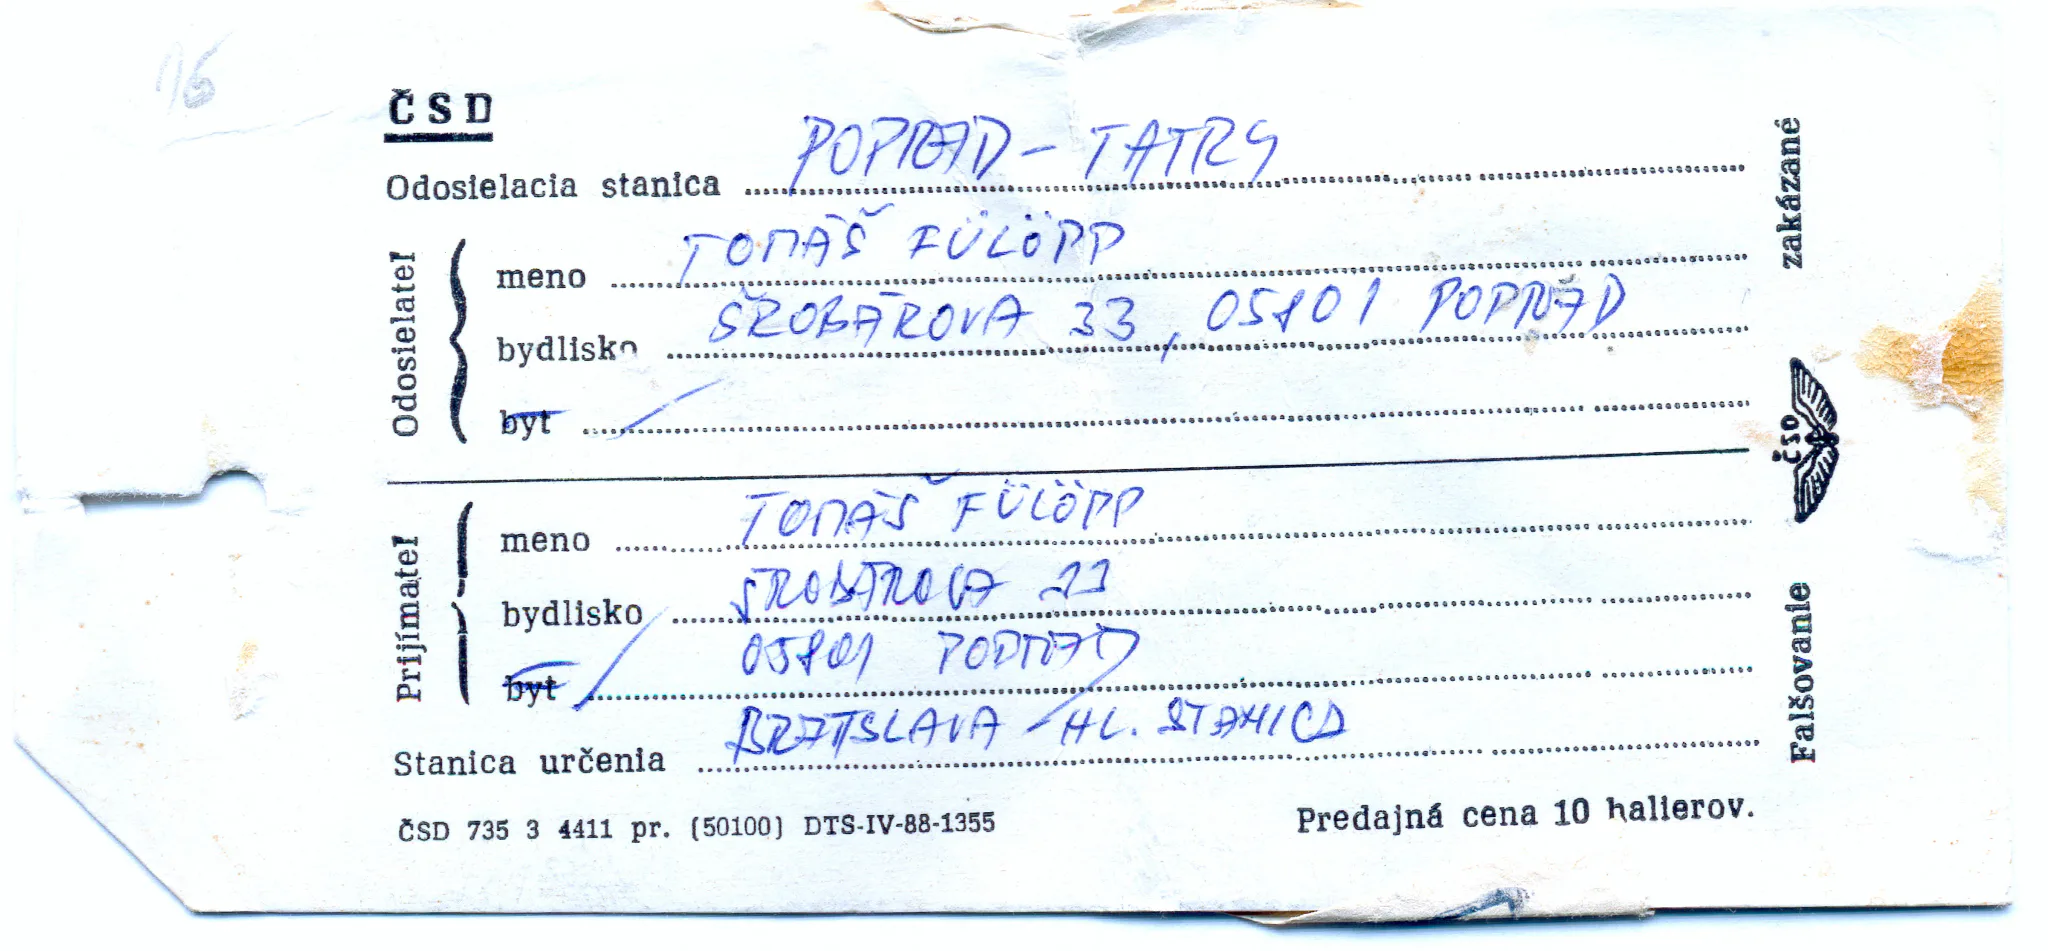 116
ČSD
Odosielacia stanica POPRAD - TATRY
Odosielateľ
meno TOMÁŠ FÜLÖPP
bydlisko ŠROBÁROVA 33, 05801 POPRAD
byt
Prijímateľ
meno TOMÁŠ FÜLÖPP
bydlisko ŠROBÁROVA 33
byt 05801 POPRAD
Stanica určenia BRATISLAVA - HL. STANICA
ČSD 735 3 4411 pr. (50100) DTS-IV-88-1355
Predajná cena 10 halierov.
Falšovanie ČSD zakázané